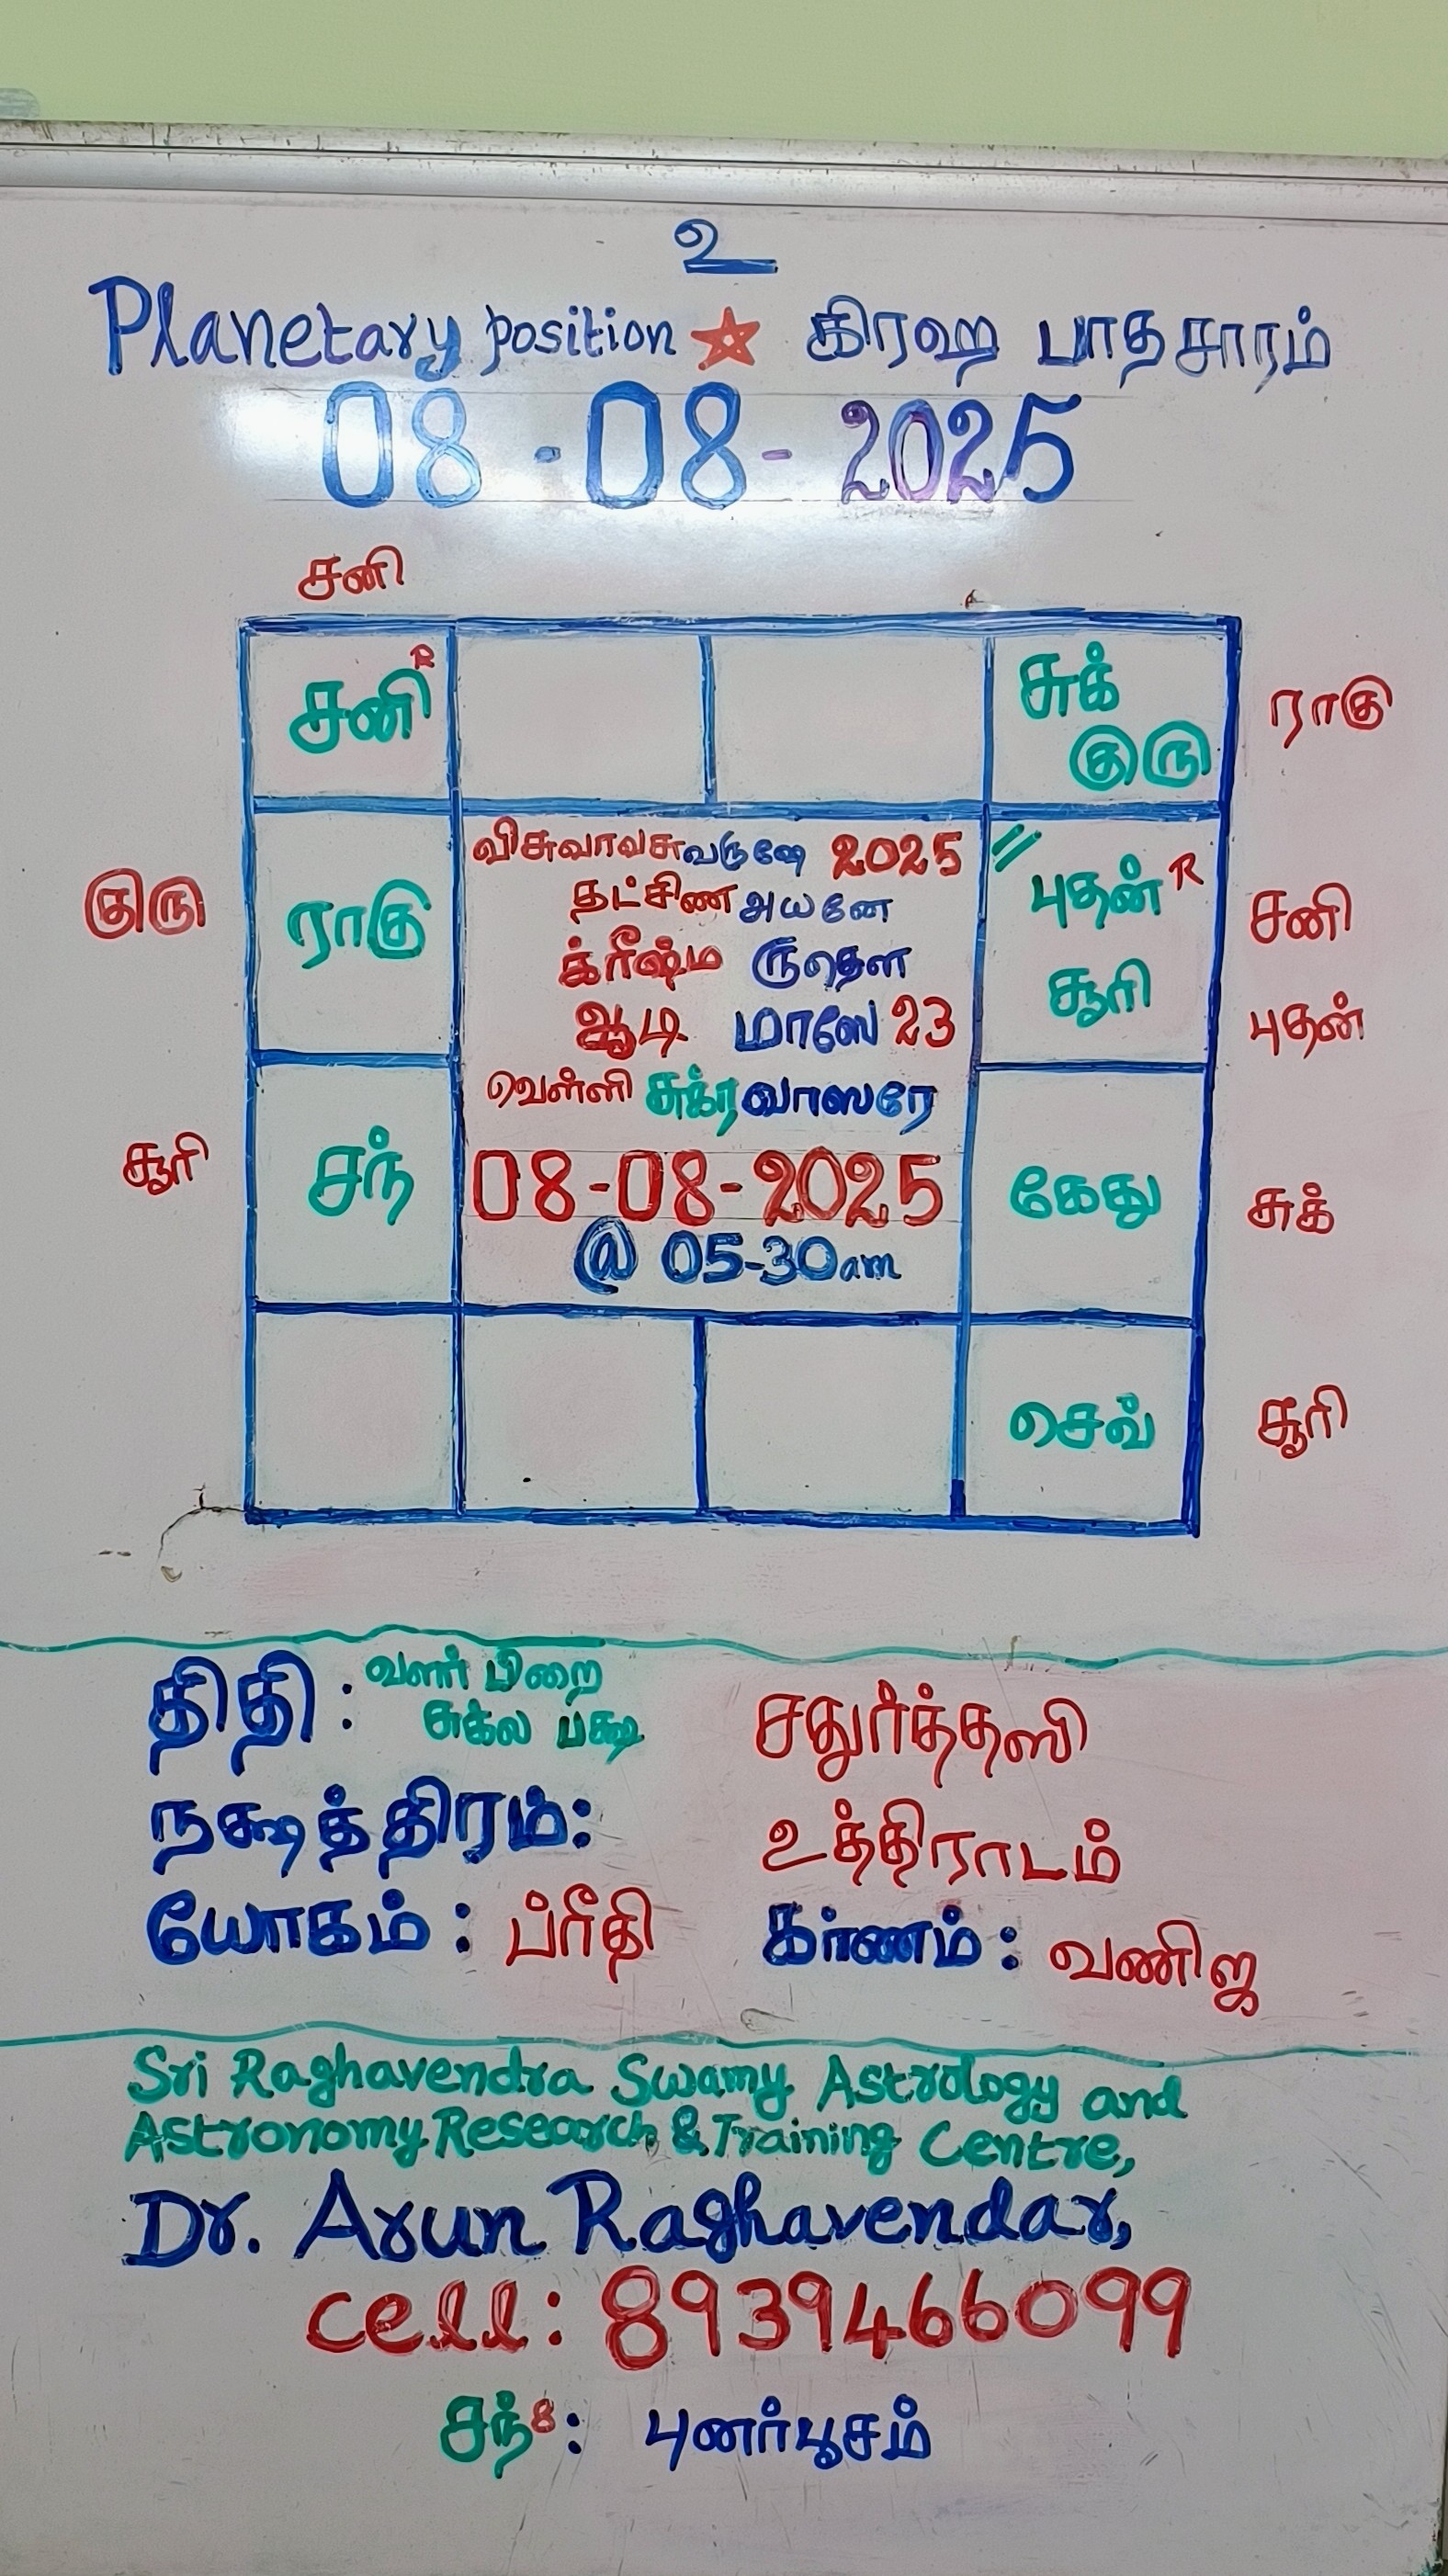 உ
Planetary position ★ கிரஹ பாதசாரம்
08-08-2025
சனி
சனி R
சுக்
குரு
ராகு
விசுவாவசுவருஷே 2025
தட்சிண அயனே
க்ரீஷ்ம ருதௌ
ஆடி மாஸே 23
வெள்ளி சுக்ரவாஸரே
08-08-2025
@ 05-30am
குரு
ராகு
〃
புதன் R
சூரி
சனி
புதன்
சூரி
சந்
கேது
சுக்
செவ்
சூரி
திதி : வளர் பிறை
சுக்ல பக்ஷ
சதுர்த்தஸி
நக்ஷத்திரம்: உத்திராடம்
யோகம் : ப்ரீதி கர்ணம் : வணிஜ
Sri Raghavendra Swamy Astrology and
Astronomy Research & Training Centre,
Dr. Arun Raghavendar,
cell: 8939466099
சந்8 : புனர்பூசம்